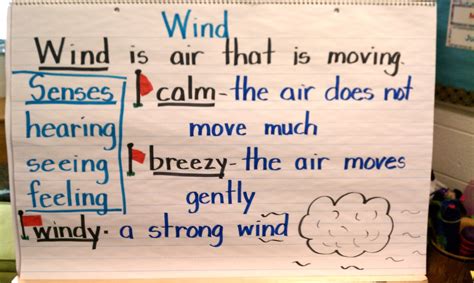 Wind
Wind is air that is moving.
Senses
hearing
seeing
feeling
calm - the air does not
move much
breezy - the air moves
gently
windy - a strong wind